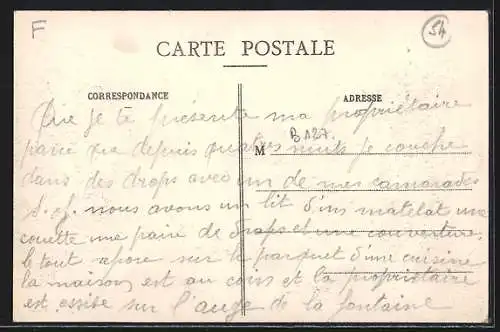 F
54
CARTE POSTALE
CORRESPONDANCE
ADRESSE
B127.
M
Que je te présente ma propriétaire
parce que depuis quatres nuits je couche
dans des draps avec un de mes camarades
nous avons un lit d'un matelat une
couette une paire de draps et une couverture.
le tout repose sur le parquet d'une cuisine
la maison est au coins et la propriétaire
est assise sur l'auge de la fontaine